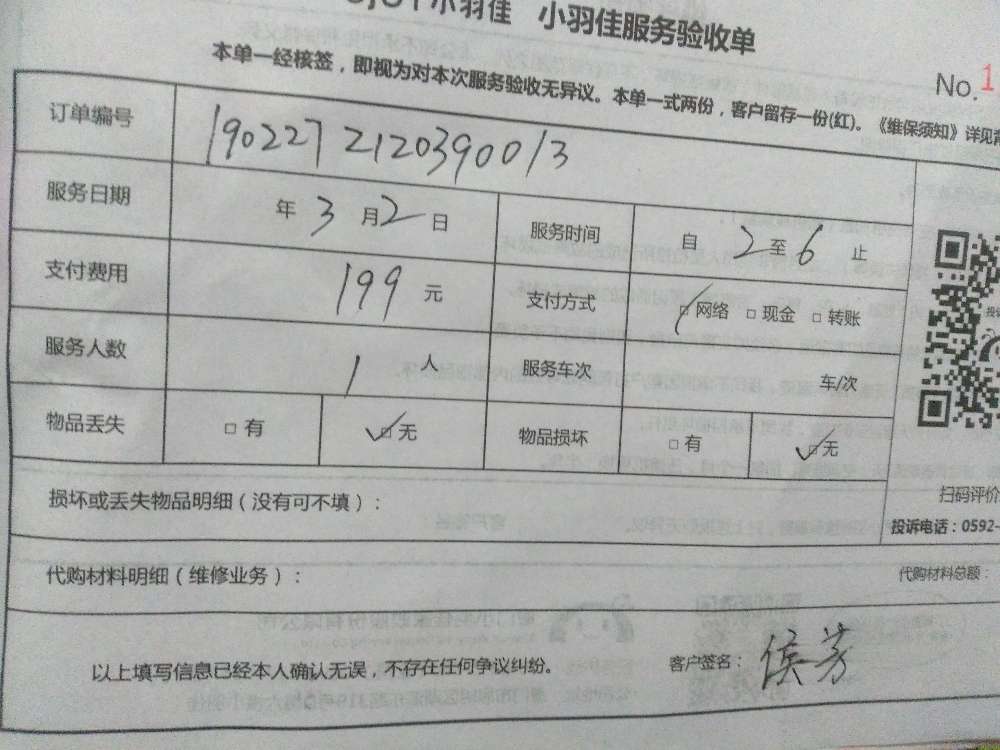 小羽佳 小羽佳服务验收单
本单一经核签，即视为对本次服务验收无异议。本单一式两份，客户留存一份(红)。《维保须知》详见背
No.1
订单编号 1902272120390013
服务日期 年3月2日 服务时间 自2至6止
支付费用 199元 支付方式 □网络 □现金 □转账
服务人数 1人 服务车次 车/次
物品丢失 □有 ☑无 物品损坏 □有 ☑无
损坏或丢失物品明细（没有可不填）：
扫码评价
投诉电话：0592-
代购材料明细（维修业务）：
代购材料总额：
以上填写信息已经本人确认无误，不存在任何争议纠纷。 客户签名：侯芳